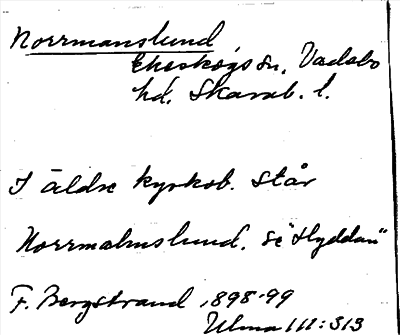 Norrmanslund
Ekeskogs sn, Vadsbo
hd. Skarab. l.
I äldre kyrkob. står
Norrmalmslund. Se "Hyddan"
F. Bergstrand, 1898-99
Ulma 111:313